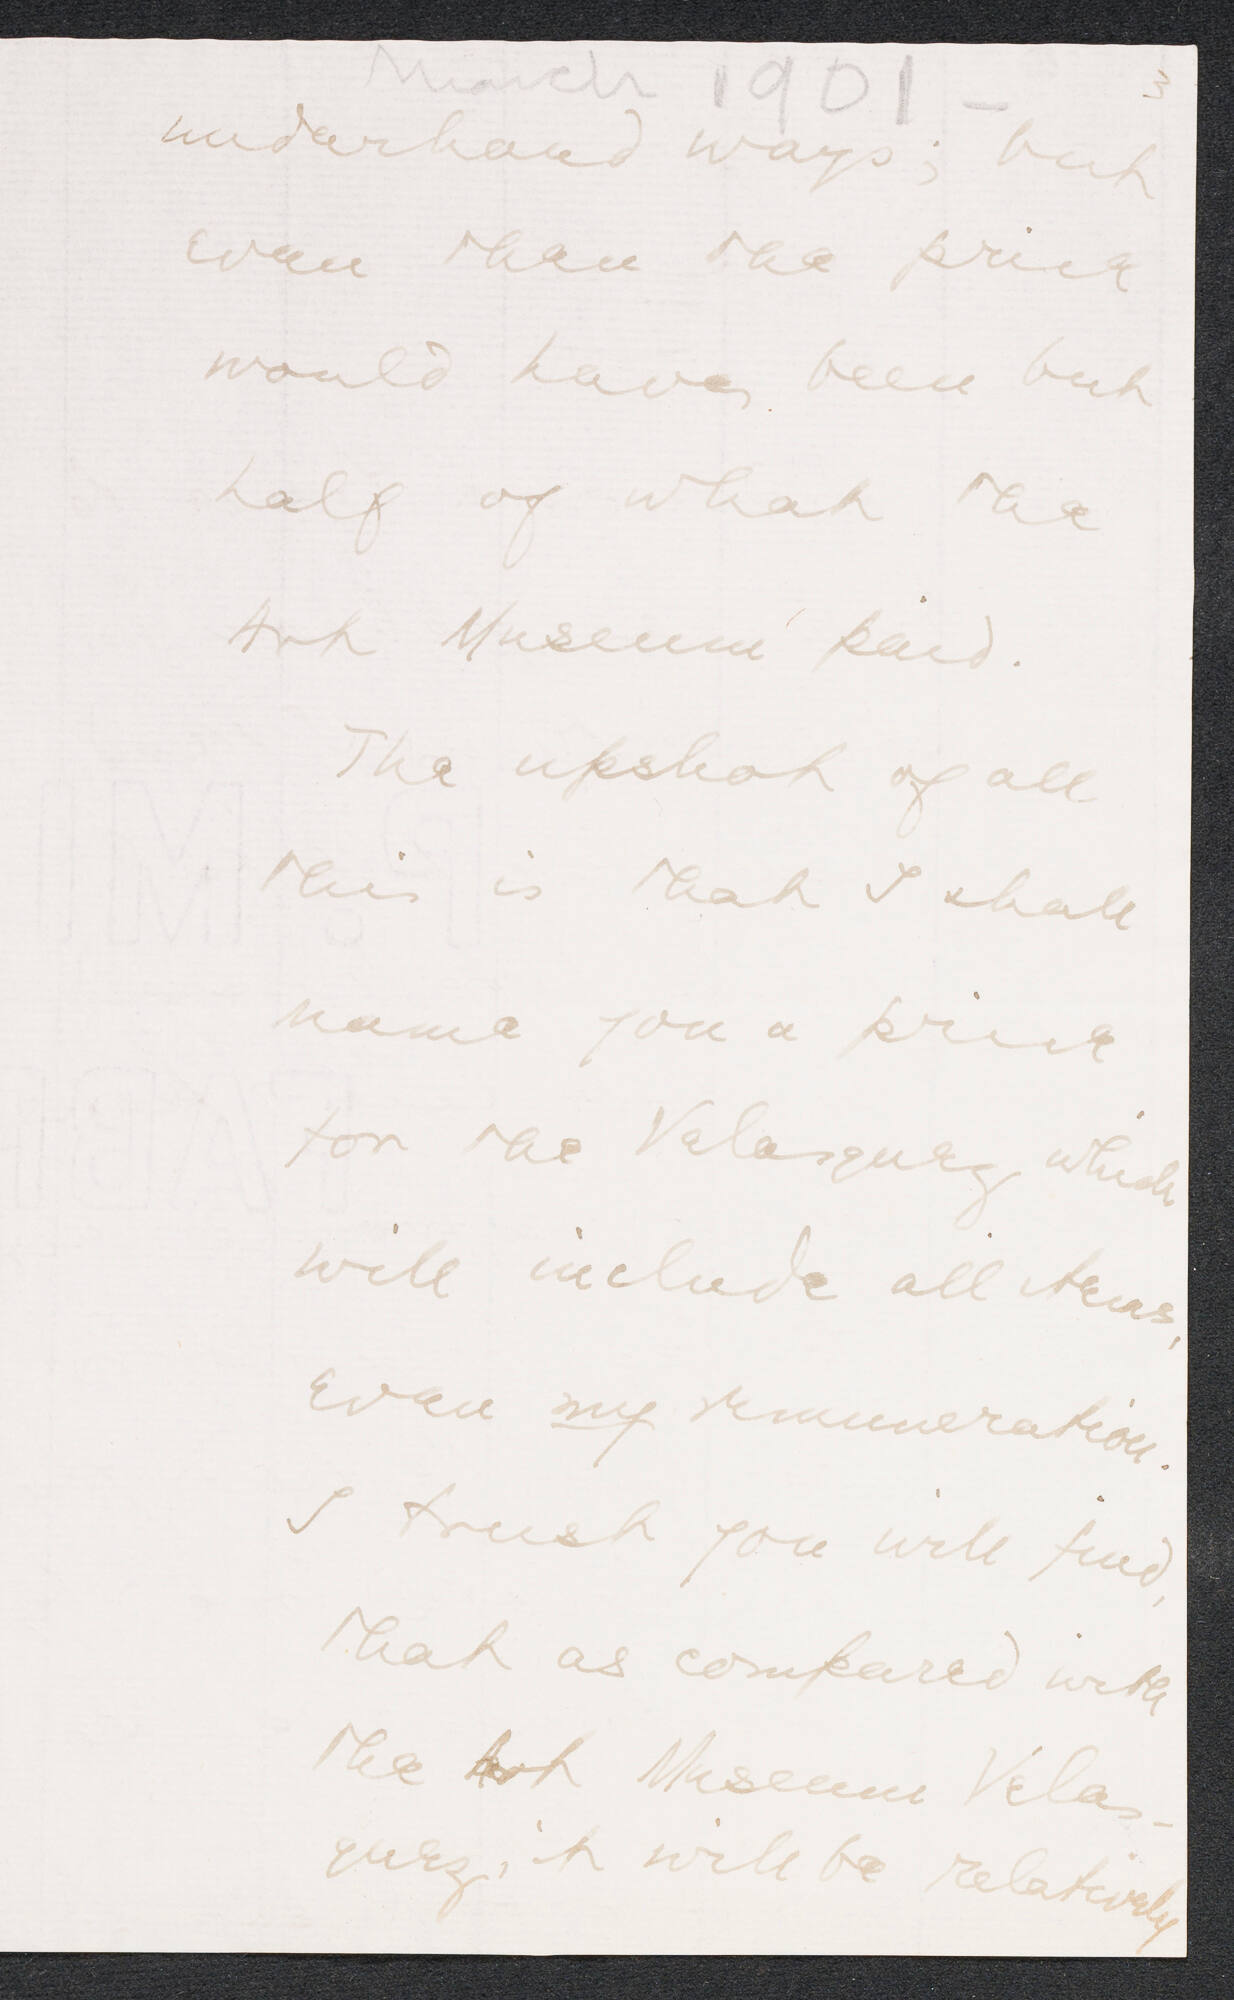 March 1901 -
3
underhand ways; but
even then the price
would have been but
half of what the
Art Museum paid.
The upshot of all
this is that I shall
name you a price
for the Velasquez which
will include all items,
even my remuneration.
I trust you will find,
that as compared with
the Art Museum Velas-
quez, it will be relatively